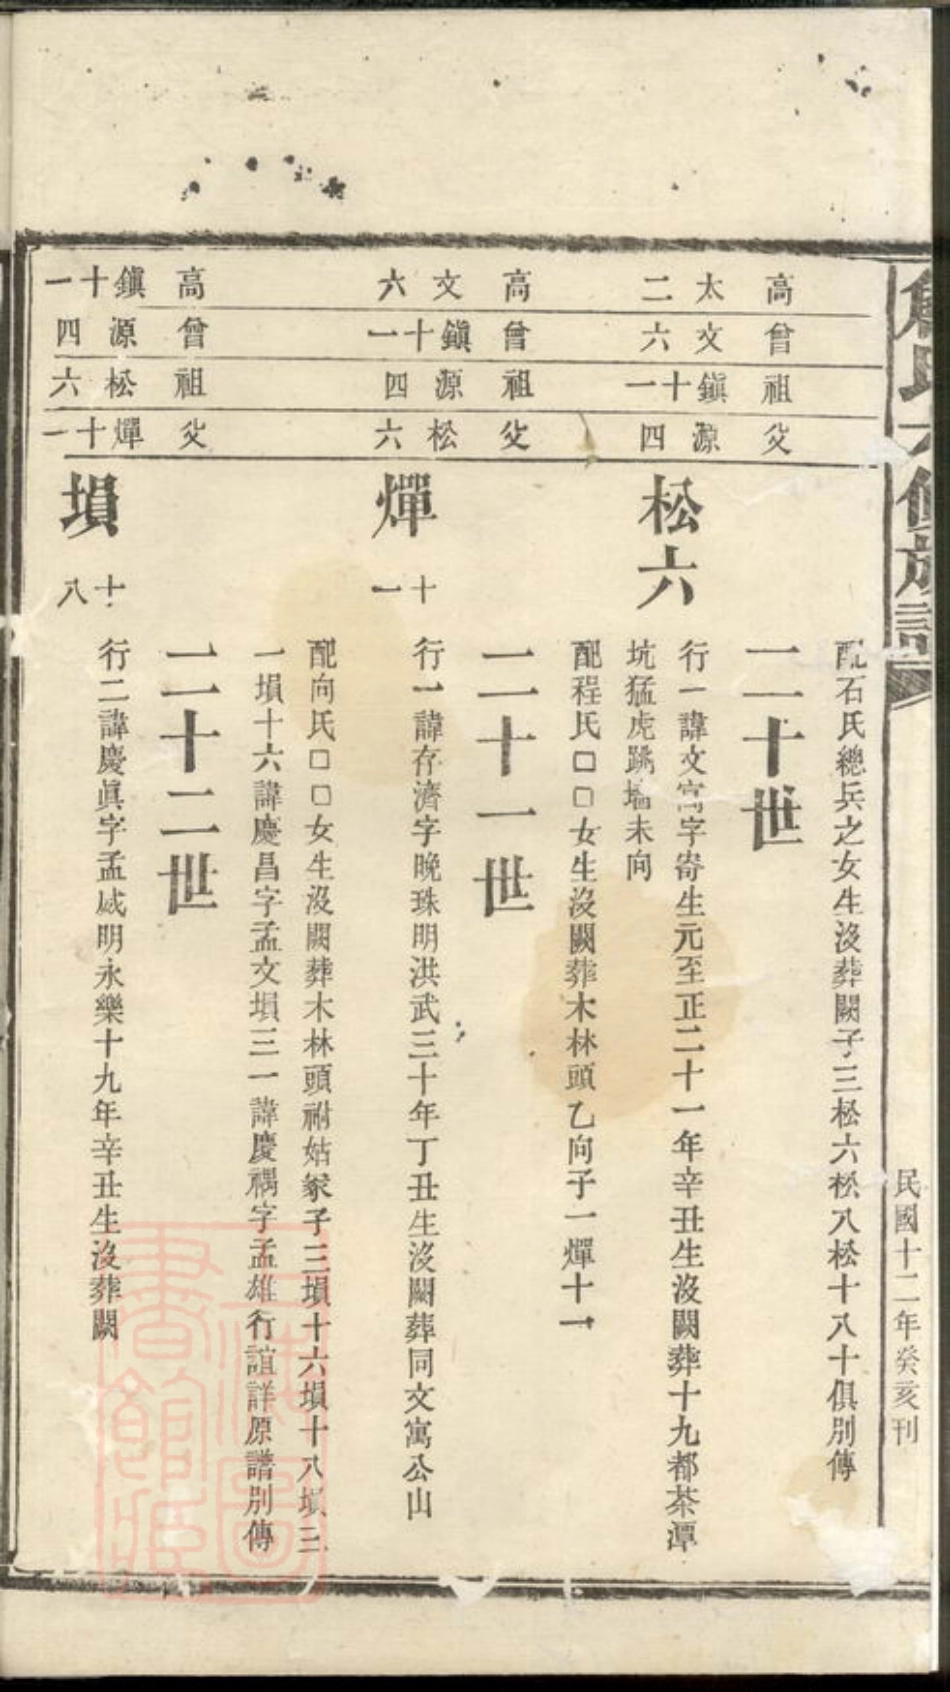 氏六修族譜
民國十二年癸亥刊
高 太二
曾 文六
祖 鎭十一
父 源四
配石氏總兵之女生沒葬闕子三松六松八松十八十俱別傳
二十世
松六
行一諱文寓字寄生元至正二十一年辛丑生沒闕葬十九都茶潭
坑猛虎跳墻未向
配程氏□□女生沒闕葬木林頭乙向子一燀十一
高 文六
曾 鎭十一
祖 源四
父 松六
二十一世
燀十一
行一諱存濟字晚珠明洪武三十年丁丑生沒闕葬同文寓公山
配向氏□□女生沒闕葬木林頭祔姑冢子三塤十六塤十八塤三
一塤十六諱慶昌字孟文塤三一諱慶禑字孟雄行誼詳原譜別傳
高 鎭十一
曾 源四
祖 松六
父 燀十一
二十二世
塤十八
行二諱慶眞字孟威明永樂十九年辛丑生沒葬闕